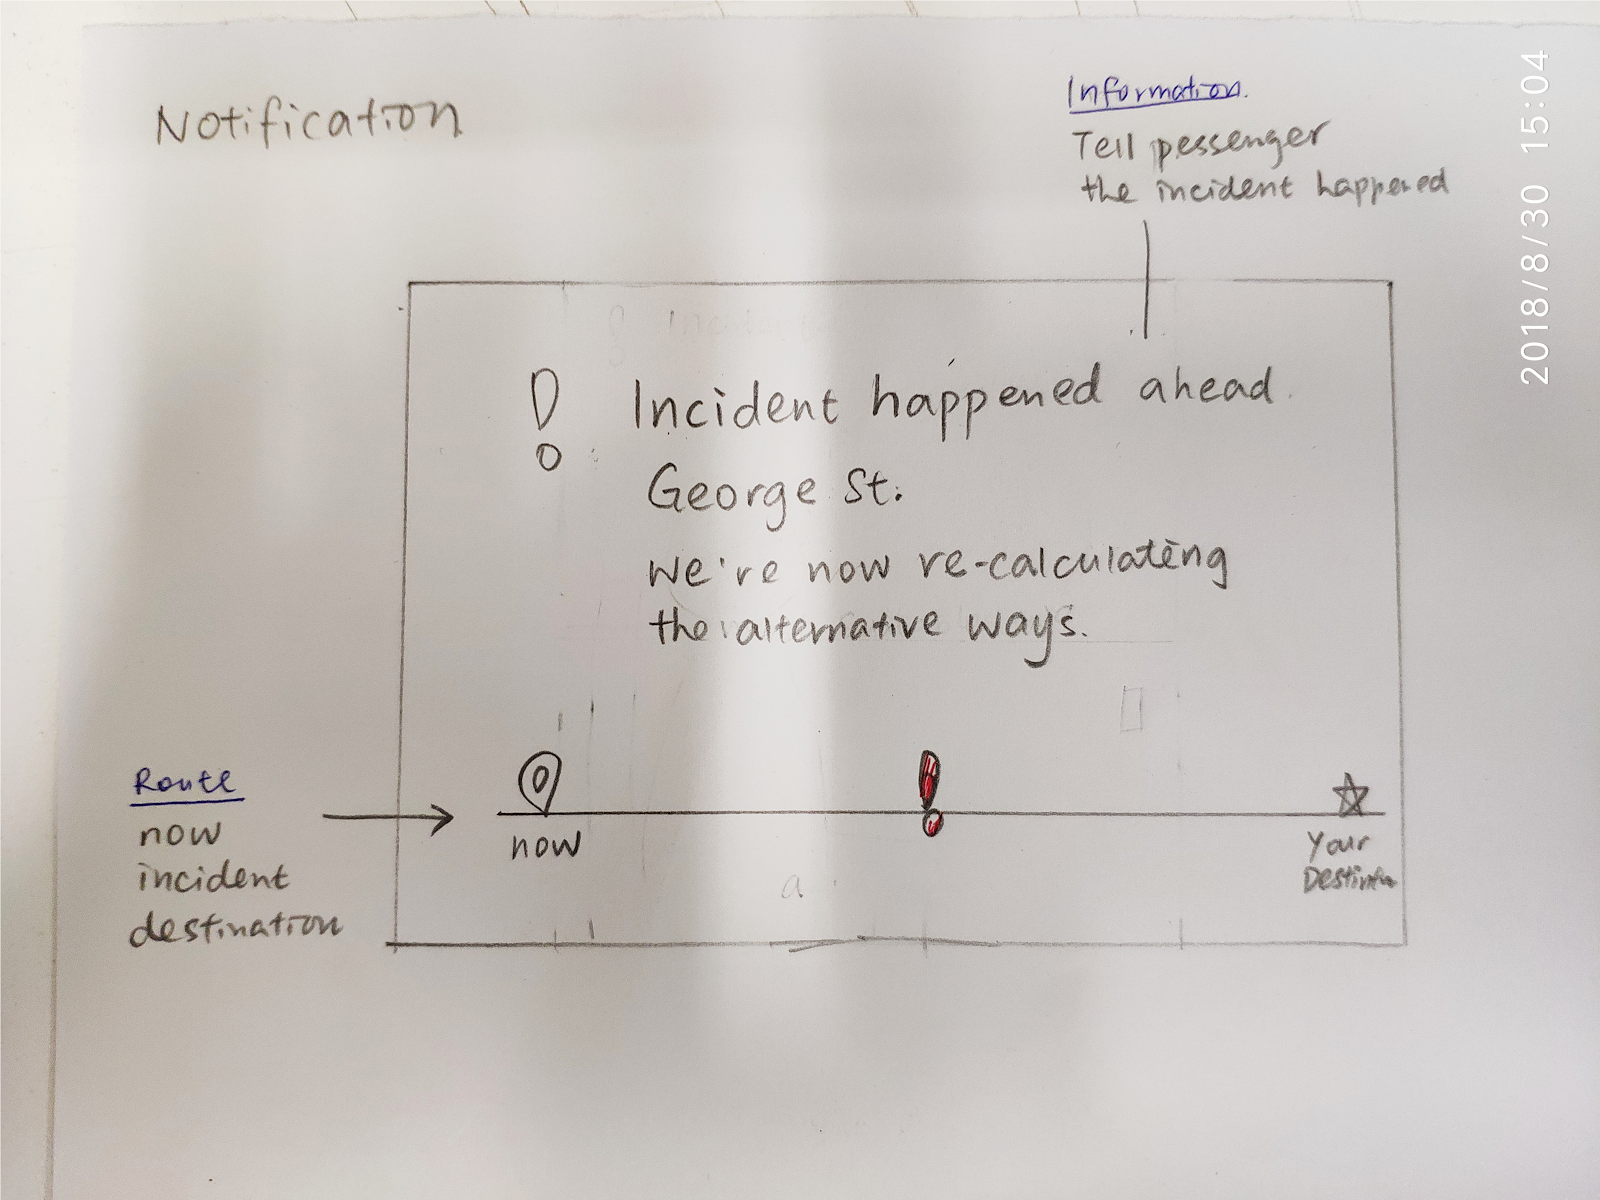 Notification
Information.
Tell pessenger
the incident happened
Incident happened ahead.
George St.
we're now re-calculating
the alternative ways.
Route
now
incident
destination
now
Your
2018/8/30 15:04